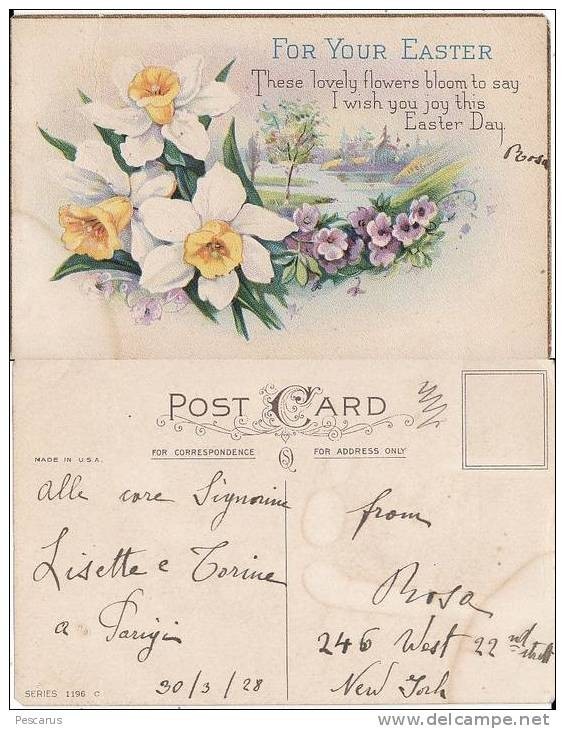 FOR YOUR EASTER
These lovely flowers bloom to say
I wish you joy this
Easter Day.
Rosa
POST CARD
MADE IN U.S.A.
FOR CORRESPONDENCE
FOR ADDRESS ONLY
alle care Signorine
Lisette e Torine
a Parigi
30/3/28
from
Rosa
246 West 22nd street
New York
SERIES 1196 C
Pescarus
www.delcampe.net